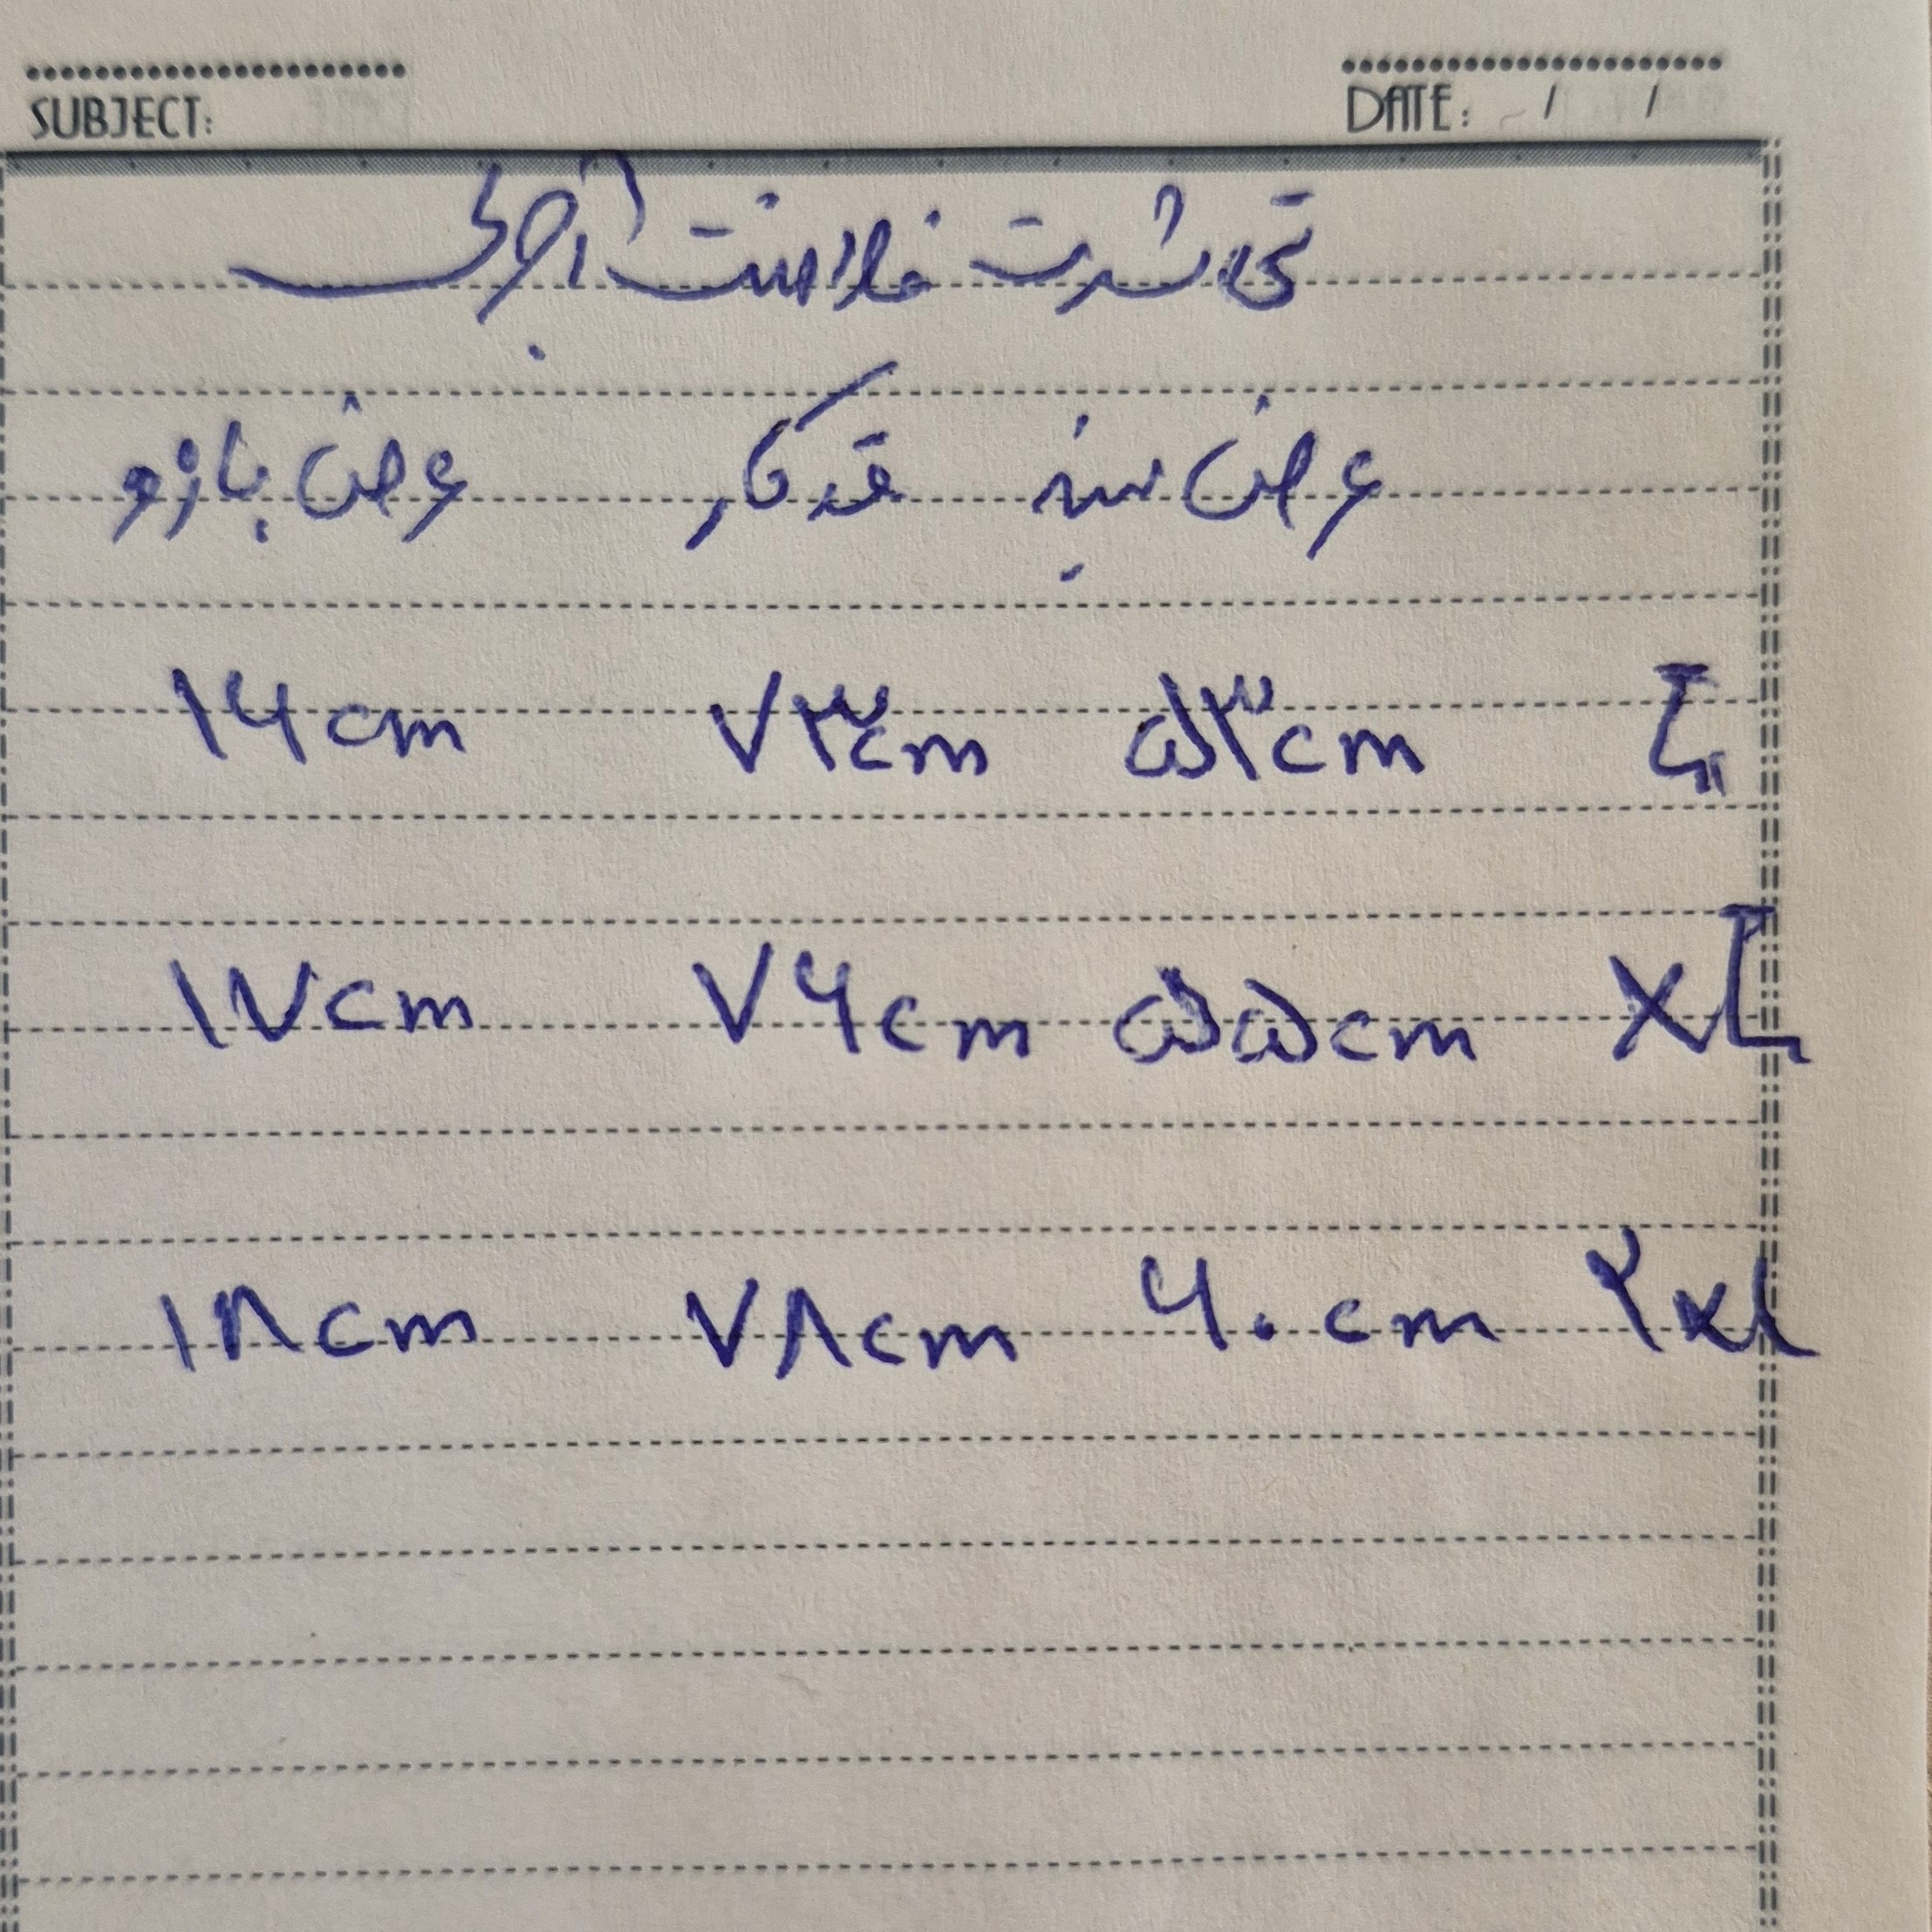 SUBJECT: DATE: / /
تی شرت فلامنت آجری
عرض سینه قد کار عرض بازو
L ۵۳cm ۷۳cm ۱۶cm
XL ۵۵cm ۷۶cm ۱۷cm
۲xl ۶۰cm ۷۸cm ۱۸cm